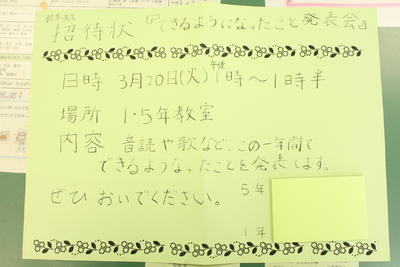 鈴木先生
招待状 『できるようになったこと発表会』
日時 3月20日(火) 午後1時～1時半
場所 1・5年教室
内容 音読や歌など、この一年間で
できるようなったことを発表します。
ぜひ おいでください。
5年
1年